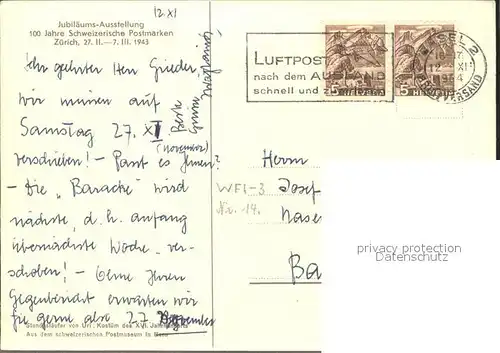 12.XI
Jubiläums-Ausstellung
100 Jahre Schweizerische Postmarken
Zürich, 27. II.—7. III. 1943
Sehr geehrter Herr Grieder,
wir müssen auf
Samstag 27. XI
(November)
verschieben! - Passt es Ihnen?
- Die "Baracke" wird
nächste, d.h. anfang
übernächste Woche ver-
schoben! - Ohne Ihren
Gegenbericht erwarten wir
Sie gerne also 27. November
Standesläufer von Uri, Kostüm des XVI. Jahrhunderts
Aus dem schweizerischen Postmuseum in Bern
LUFTPOST
nach dem AUSLAND
schnell und
BASEL 2
12. XI
BRIEFVERSAND
5 HELVETIA
5 HELVETIA
Herrn
Josef
WEI-3
Nr. 14.
Ba
privacy protection
Oldthing.de